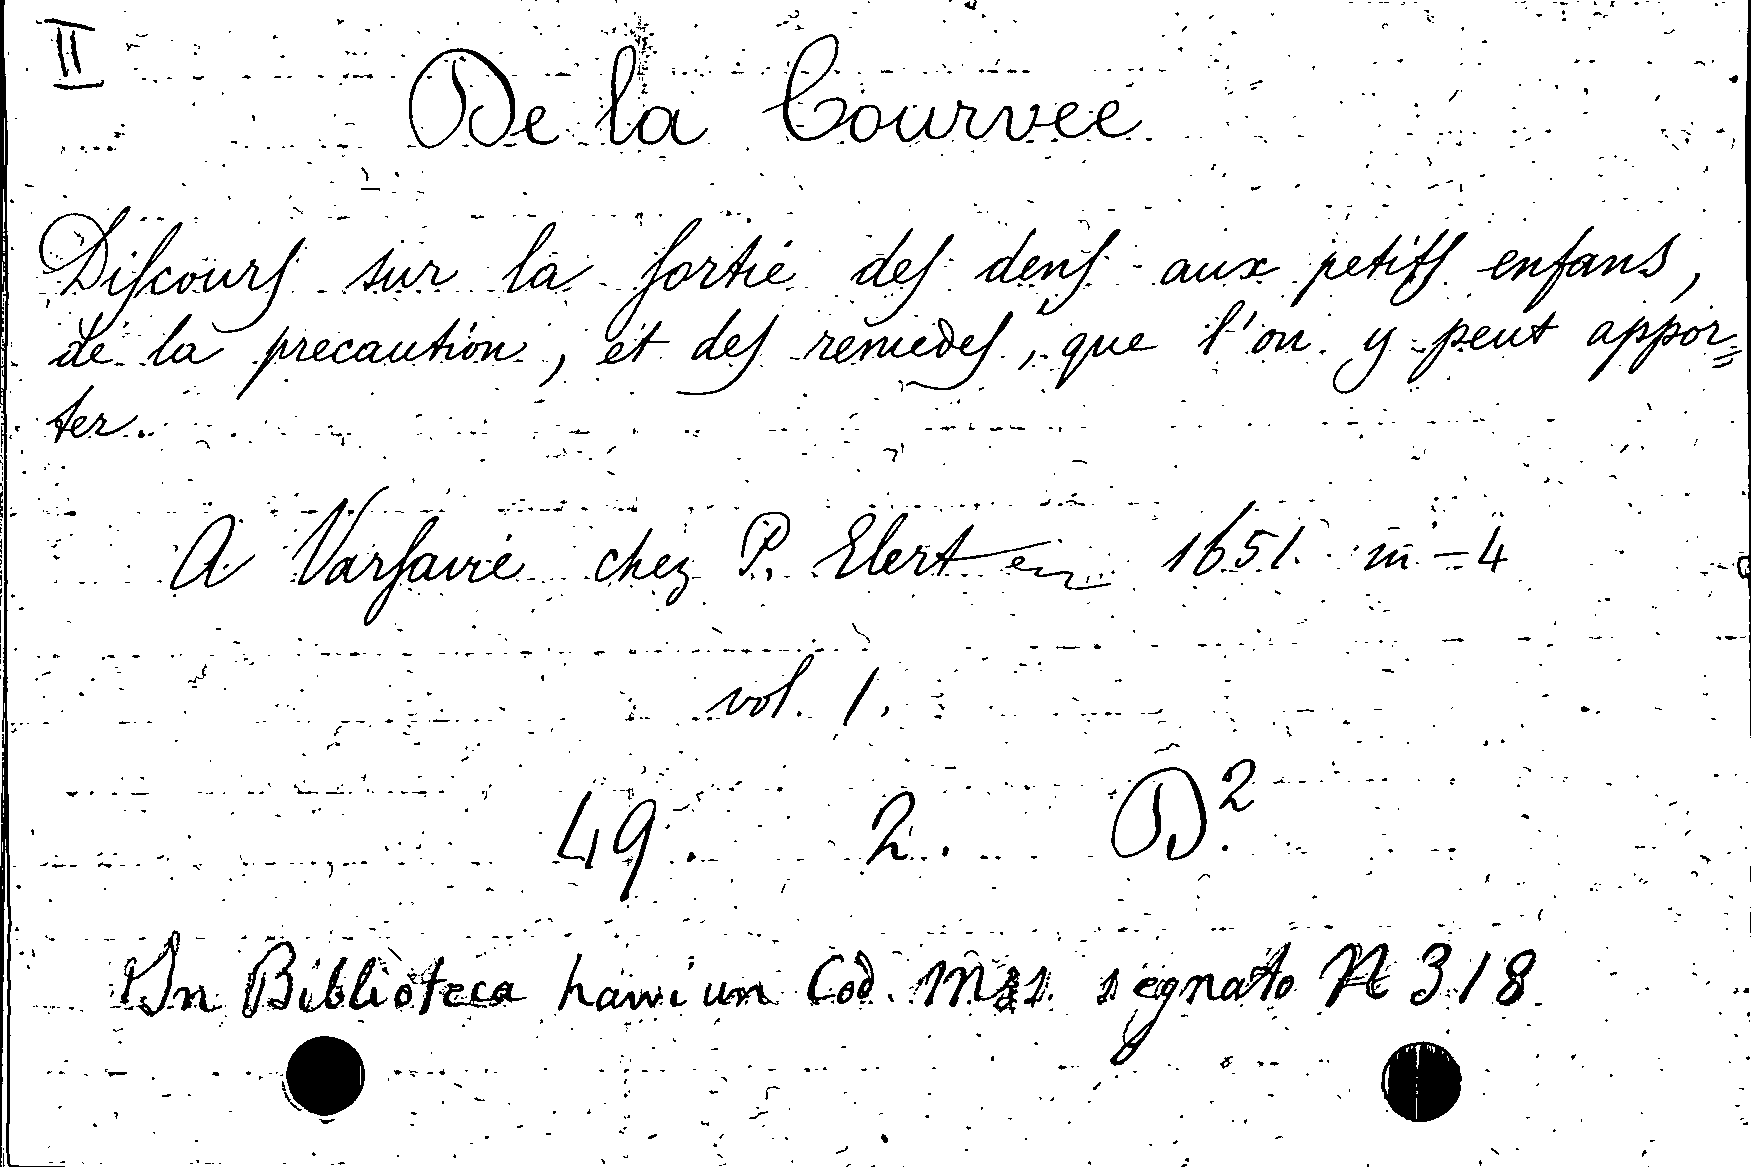 II
De la Courvee
Diſcourſ sur la ſortie deſ denſ aux petitſ enfans,
de la precaution, et deſ remedeſ, que l'on y peut appor=
ter.
A Varſavie chez P. Elert en 1651. in-4
vol. 1.
49. 2. D².
In Biblioteca havvi un Cod. Mss. segnato N 318